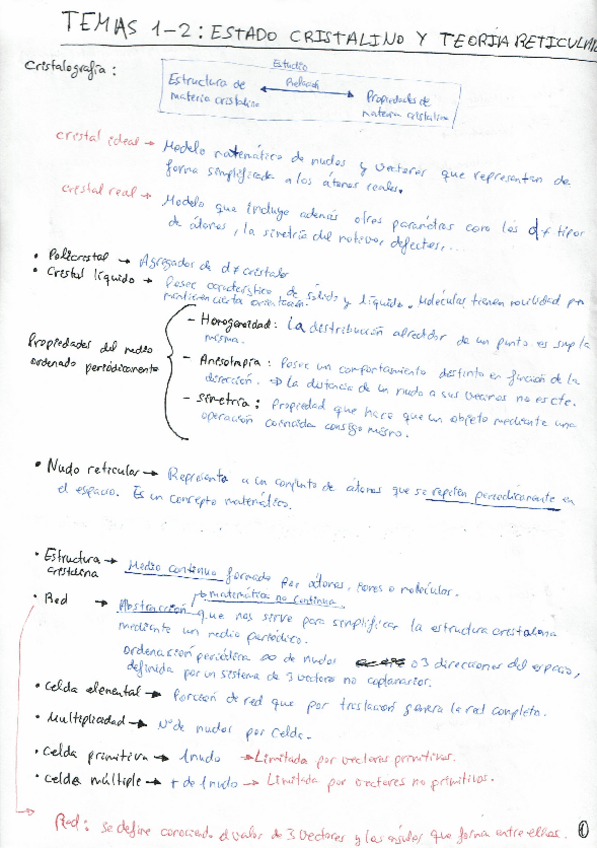 TEMAS 1-2: ESTADO CRISTALINO Y TEORIA RETICULAR
Cristalografía:
Estudio
Estructura de materia cristalina
Relación
Propiedades de materia cristalina
cristal ideal → Modelo matemático de nudos y vectores que representan de
forma simplificada a los átomos reales.
cristal real → Modelo que incluye además otros parámetros como los d≠ tipos
de átomos, la simetría del motivo, defectos,...
• Policristal → Agregados de d≠ cristales
• Cristal líquido → Posee característica de sólido y líquido. Moléculas tienen movilidad pero
mantienen cierta orientación.
Propiedades del medio
ordenado periódicamente
- Homogeneidad: La distribución alrededor de un punto es siempre la
misma.
- Anisotropía: Posee un comportamiento distinto en función de la
dirección. → La distancia de un nudo a sus vecinos no es cte.
- Simetría: Propiedad que hace que un objeto mediante una
operación coincida consigo mismo.
• Nudo reticular → Representa a un conjunto de átomos que se repiten periódicamente en
el espacio. Es un concepto matemático.
• Estructura cristalina → Medio continuo formado por átomos, iones o moléculas.
matemática no continua
• Red → Abstracción que nos sirve para simplificar la estructura cristalina
mediante un medio periódico.
Ordenación periódica ∞ de nudos o 3 direcciones del espacio,
definida por un sistema de 3 vectores no coplanarios.
• Celda elemental → Porción de red que por traslación genera la red completa.
• Multiplicidad → Nº de nudos por celda.
• Celda primitiva → 1 nudo → Limitada por vectores primitivos.
• Celda múltiple → + de 1 nudo → Limitada por vectores no primitivos.
Red: se define conociendo el valor de 3 vectores y los ángulos que forma entre ellos.
1